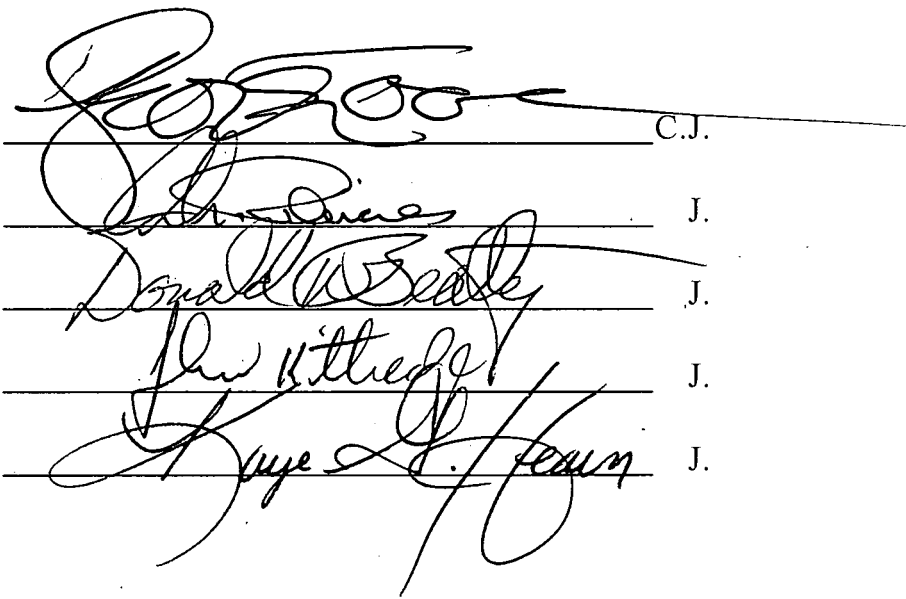 C.J.
J.
Donald W. Beatty J.
John Kittredge J.
Kaye G. Hearn J.